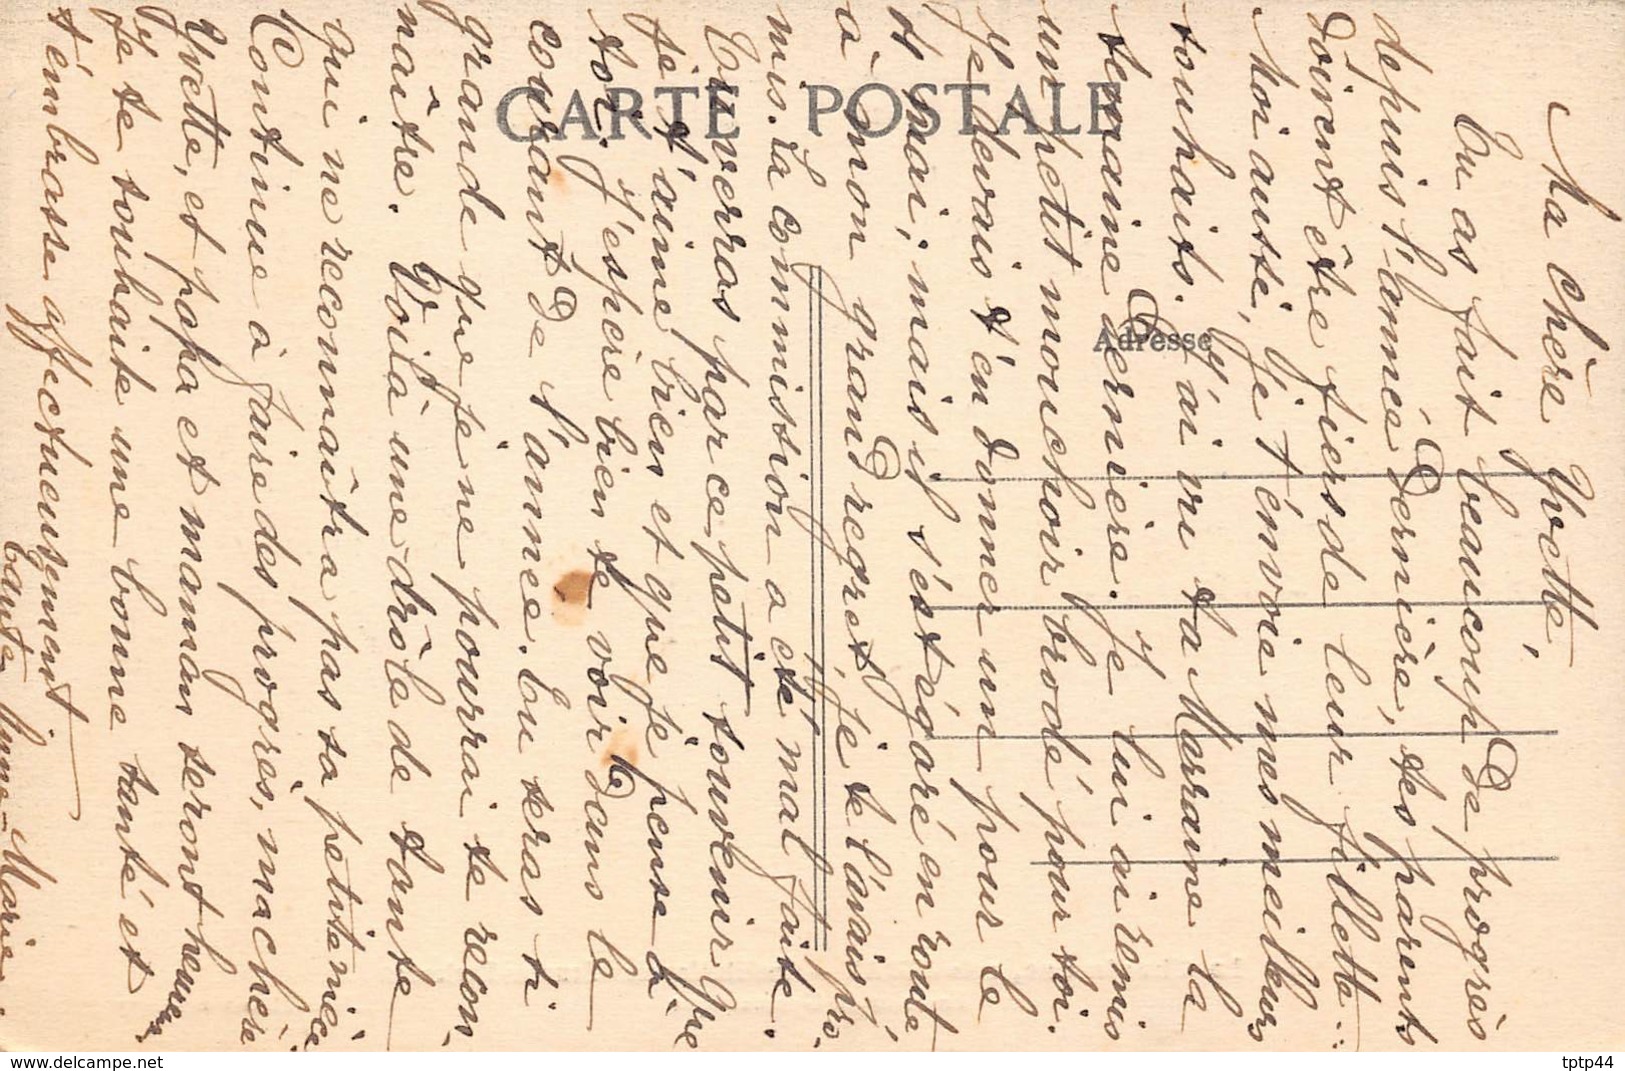 CARTE POSTALE
Adresse
Ma chère Yvette,
Tu as fait beaucoup de progrès
depuis l'année dernière, tes parents
doivent être fiers de leur fillette..
Moi aussi, je t'envoie mes meilleurs
souhaits. J'ai vu ta Marraine la
semaine dernière. Je lui ai remis
un petit mouchoir brodé pour toi.
Je devais t'en donner un pour le
1er mai; mais il s'est égaré en route
à mon grand regret, je te l'avais pro-
mis. La commission a été mal faite.
Tu verras par ce petit souvenir que
je t'aime bien et que je pense à
toi. J'espère bien te voir dans le
courant de l'année. Tu seras si
grande que je ne pourrai te recon-
naître. Voilà une drôle de tante
qui ne reconnaîtra pas sa petite nièce
Continue à faire des progrès, ma chère
Yvette, et papa et maman seront heureux
Je te souhaite une bonne santé et
t'embrasse affectueusement
Tante Anne-Marie.
delcampe.net
tptp44